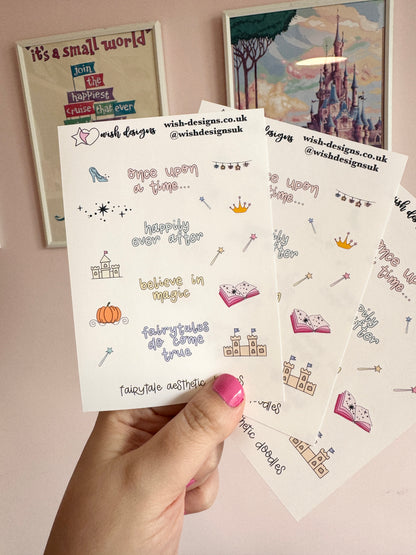 it's a small world
Join
the
happiest
cruise that ever
wish designs
wish-designs.co.uk
@wishdesignsuk
once upon
a time...
happily
ever after
believe in
magic
fairytales
do come
true
fairytale aesthetic
designs
wish-designs.co.uk
@wishdesignsuk
upon
time...
after
doodles
thetic doodles